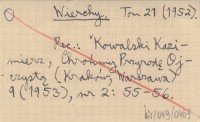 Wierchy. Tom 21 (1952).
Rec.: "Kowalski Kazi-
mierz, Chrońmy Przyrodę Oj-
czystą (Kraków, Warszawa)
9 (1953), nr 2: 55-56.